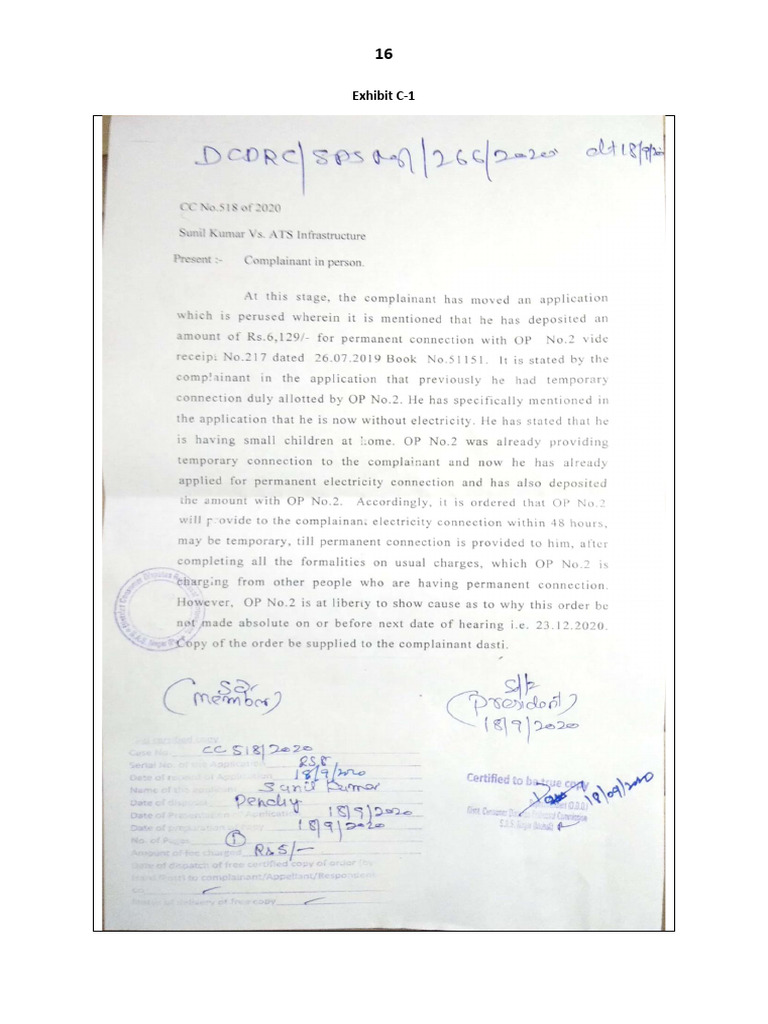 16
Exhibit C-1
DCDRC/SPS Ngr/266/2020 dt 18/9/20
CC No.518 of 2020
Sunil Kumar Vs. ATS Infrastructure
Present :- Complainant in person.
At this stage, the complainant has moved an application
which is perused wherein it is mentioned that he has deposited an
amount of Rs.6,129/- for permanent connection with OP No.2 vide
receipt No.217 dated 26.07.2019 Book No.51151. It is stated by the
complainant in the application that previously he had temporary
connection duly allotted by OP No.2. He has specifically mentioned in
the application that he is now without electricity. He has stated that he
is having small children at home. OP No.2 was already providing
temporary connection to the complainant and now he has already
applied for permanent electricity connection and has also deposited
the amount with OP No.2. Accordingly, it is ordered that OP No.2
will provide to the complainant electricity connection within 48 hours,
may be temporary, till permanent connection is provided to him, after
completing all the formalities on usual charges, which OP No.2 is
charging from other people who are having permanent connection.
However, OP No.2 is at liberty to show cause as to why this order be
not made absolute on or before next date of hearing i.e. 23.12.2020.
Copy of the order be supplied to the complainant dasti.
Sd/- S/d
(Member) (President)
18/9/2020
Case No. CC 518/2020
Serial No. of the Application RS.8
Date of receipt of Application 18/9/2020
Name of the Sunil Kumar
Date of disposal Pending
Date of Preparation of Application 18/9/2020
Date of preparation 18/9/2020
No. of Pages 1
Amount of fee charged Rs 5/-
Date of dispatch of free certified copy of order (by
to complainant/Appellant/Respondent
delivery of free copy
Certified to be true copy
18/09/2020